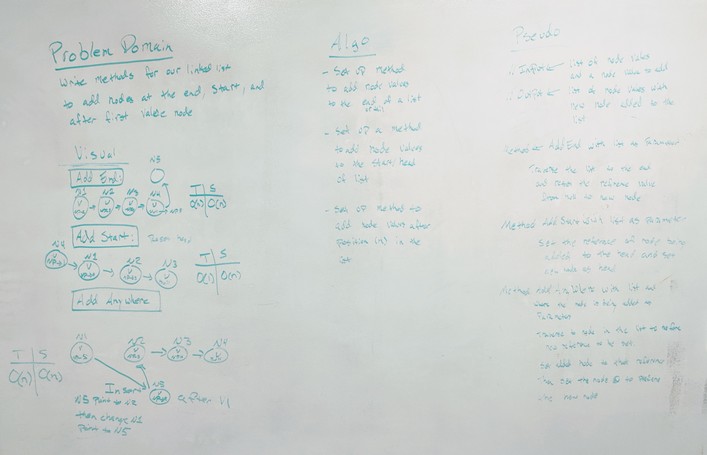 Problem Domain
Write methods for our linked list
to add nodes at the end, start, and
after first value node
Visual
Add End:
N5
N1 N2 N3 N4
T S
O(n) O(n)
Add Start:
N4
N1
N2
N3
T S
O(1) O(n)
Add Anywhere
N1
N2 N3 N4
T S
O(n) O(n)
Insert
N5
N5 Point to N2
then change N1
Point to N5
Algo
- Set up method
to add node values
to the end of a list
- Set up a method
to add node values
to the start/head
of list
- Set up method to
add node values after
position (n) in the
list
Pseudo
list of node values
and a node value to add
list of node values with
new node added to the
list
Method Add End with list as Parameter
Traverse the list to the end
and the reference value
from null to new node
Method Add Start with list as Parameter
Set the reference of node being
added to the head and set
node as head
Method Add Any Where with list and
where the node is being added as
Parameters
Traverse to node in the list before
new reference to be
Set added node to that reference
Then set the node to
the new node